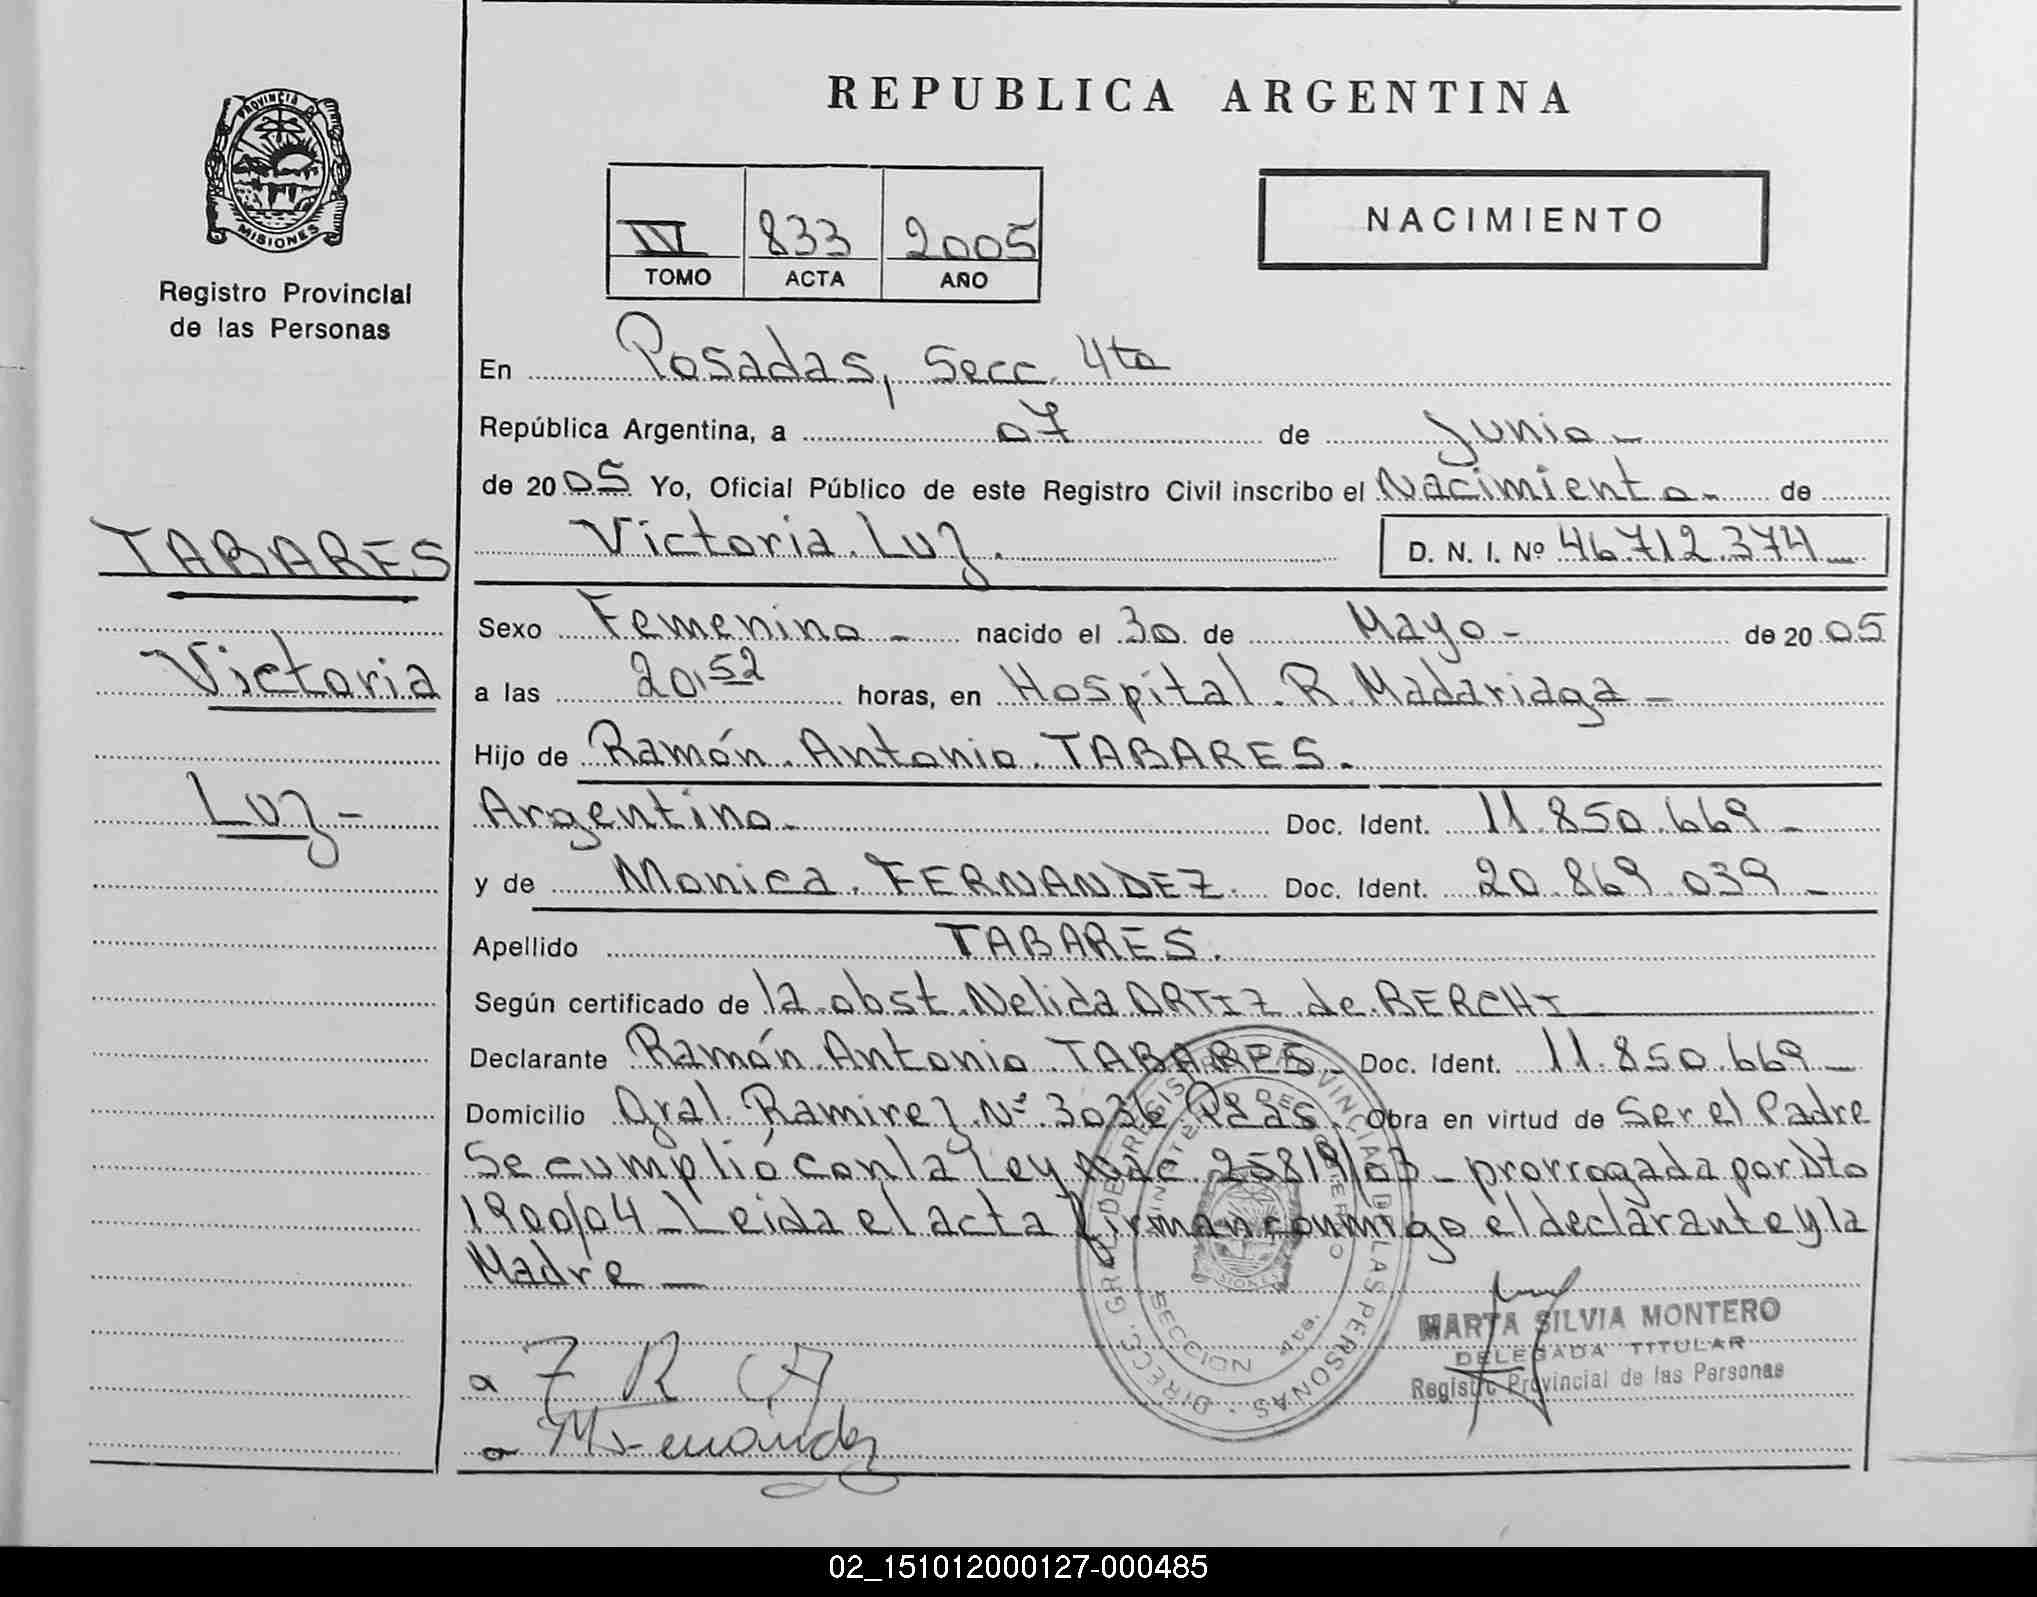 PROVINCIA DE
MISIONES
Registro Provincial
de las Personas
TABARES
Victoria
Luz-
REPUBLICA ARGENTINA
833 2005
TOMO ACTA AÑO
NACIMIENTO
En Posadas, Secc. 4ta
República Argentina, a 07 de Junio-
de 2005 Yo, Oficial Público de este Registro Civil inscribo el Nacimiento- de
Victoria Luz. D. N. I. Nº 46.712.374
Sexo Femenino - nacido el 30 de Mayo - de 2005
a las 20,52 horas, en Hospital R. Madariaga -
Hijo de Ramón Antonio TABARES.
Argentino- Doc. Ident. 11.850.669-
y de Monica FERNANDEZ. Doc. Ident. 20.869.039-
Apellido TABARES.
Según certificado de la obst. Nelida ORTIZ de BERCHI
Declarante Ramón Antonio TABARES- Doc. Ident. 11.850.669-
Domicilio Gral. Ramirez Nº 3036 Pdas. Obra en virtud de Ser el Padre
Se cumplió con la Ley Nac. 25819/03 - prorrogada por Dto
1900/04 - Leida el acta firman conmigo el declarante y la
Madre -
DIRECC. GRAL. DE REGISTRO PROVINCIAL DE LAS PERSONAS
SECCION 4ta.
MARTA SILVIA MONTERO
DELEGADA TITULAR
Registro Provincial de las Personas
02_151012000127-000485